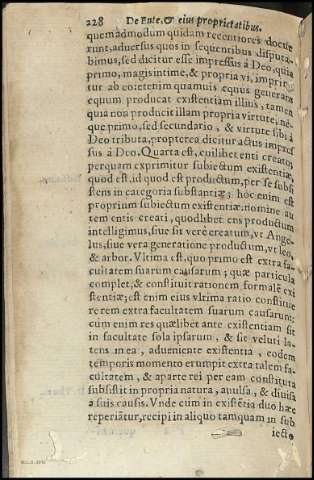 228 De Ente, & eius proprietatibus.
quemadmodum quidam recentiores docue
runt, aduersus quos in sequentibus disputa-
bimus, sed dicitur esse impressus à Deo, quia
primo, magis intimè, & propria vi, imprimi
tur ab eo: etenim quamuis equus generans
equum producat existentiam illius, tamen
quia non producit illam propria virtute, ne-
que primo, sed secundario, & virtute sibi à
Deo tributa, propterea dicitur actus impres
sus à Deo. Quarta est, cuilibet enti creato,
per quam exprimitur subiectum existentiæ,
quod est, id quod est productum, per se subsi
stens in categoria substantiæ; hoc enim est
proprium subiectum existentiæ: nomine au
tem entis creati, quodlibet ens productum
intelligimus, siue sit verè creatum, vt Ange
lus, siue vera generatione productum, vt leo,
& arbor. Vltima est, quo primo est extra fa-
cultatem suarum causarum; quæ particula
complet, & constituit rationem formalẽ exi
stentiæ; est enim eius vltima ratio constitue
re rem extra facultatem suarum causarum:
cum enim res quælibet ante existentiam sit
in facultate sola ipsarum, & sit veluti la-
tens in ea, adueniente existentia, eodem
temporis momento erumpit extra talem fa-
cultatem, & aparte rei per eam constituta
subsistit in propria natura, auulsa, & diuisa
a suis causis. Vnde cùm in existẽtia duo hæc
reperiãtur, recipi in aliquo tamquam in sub
iecto